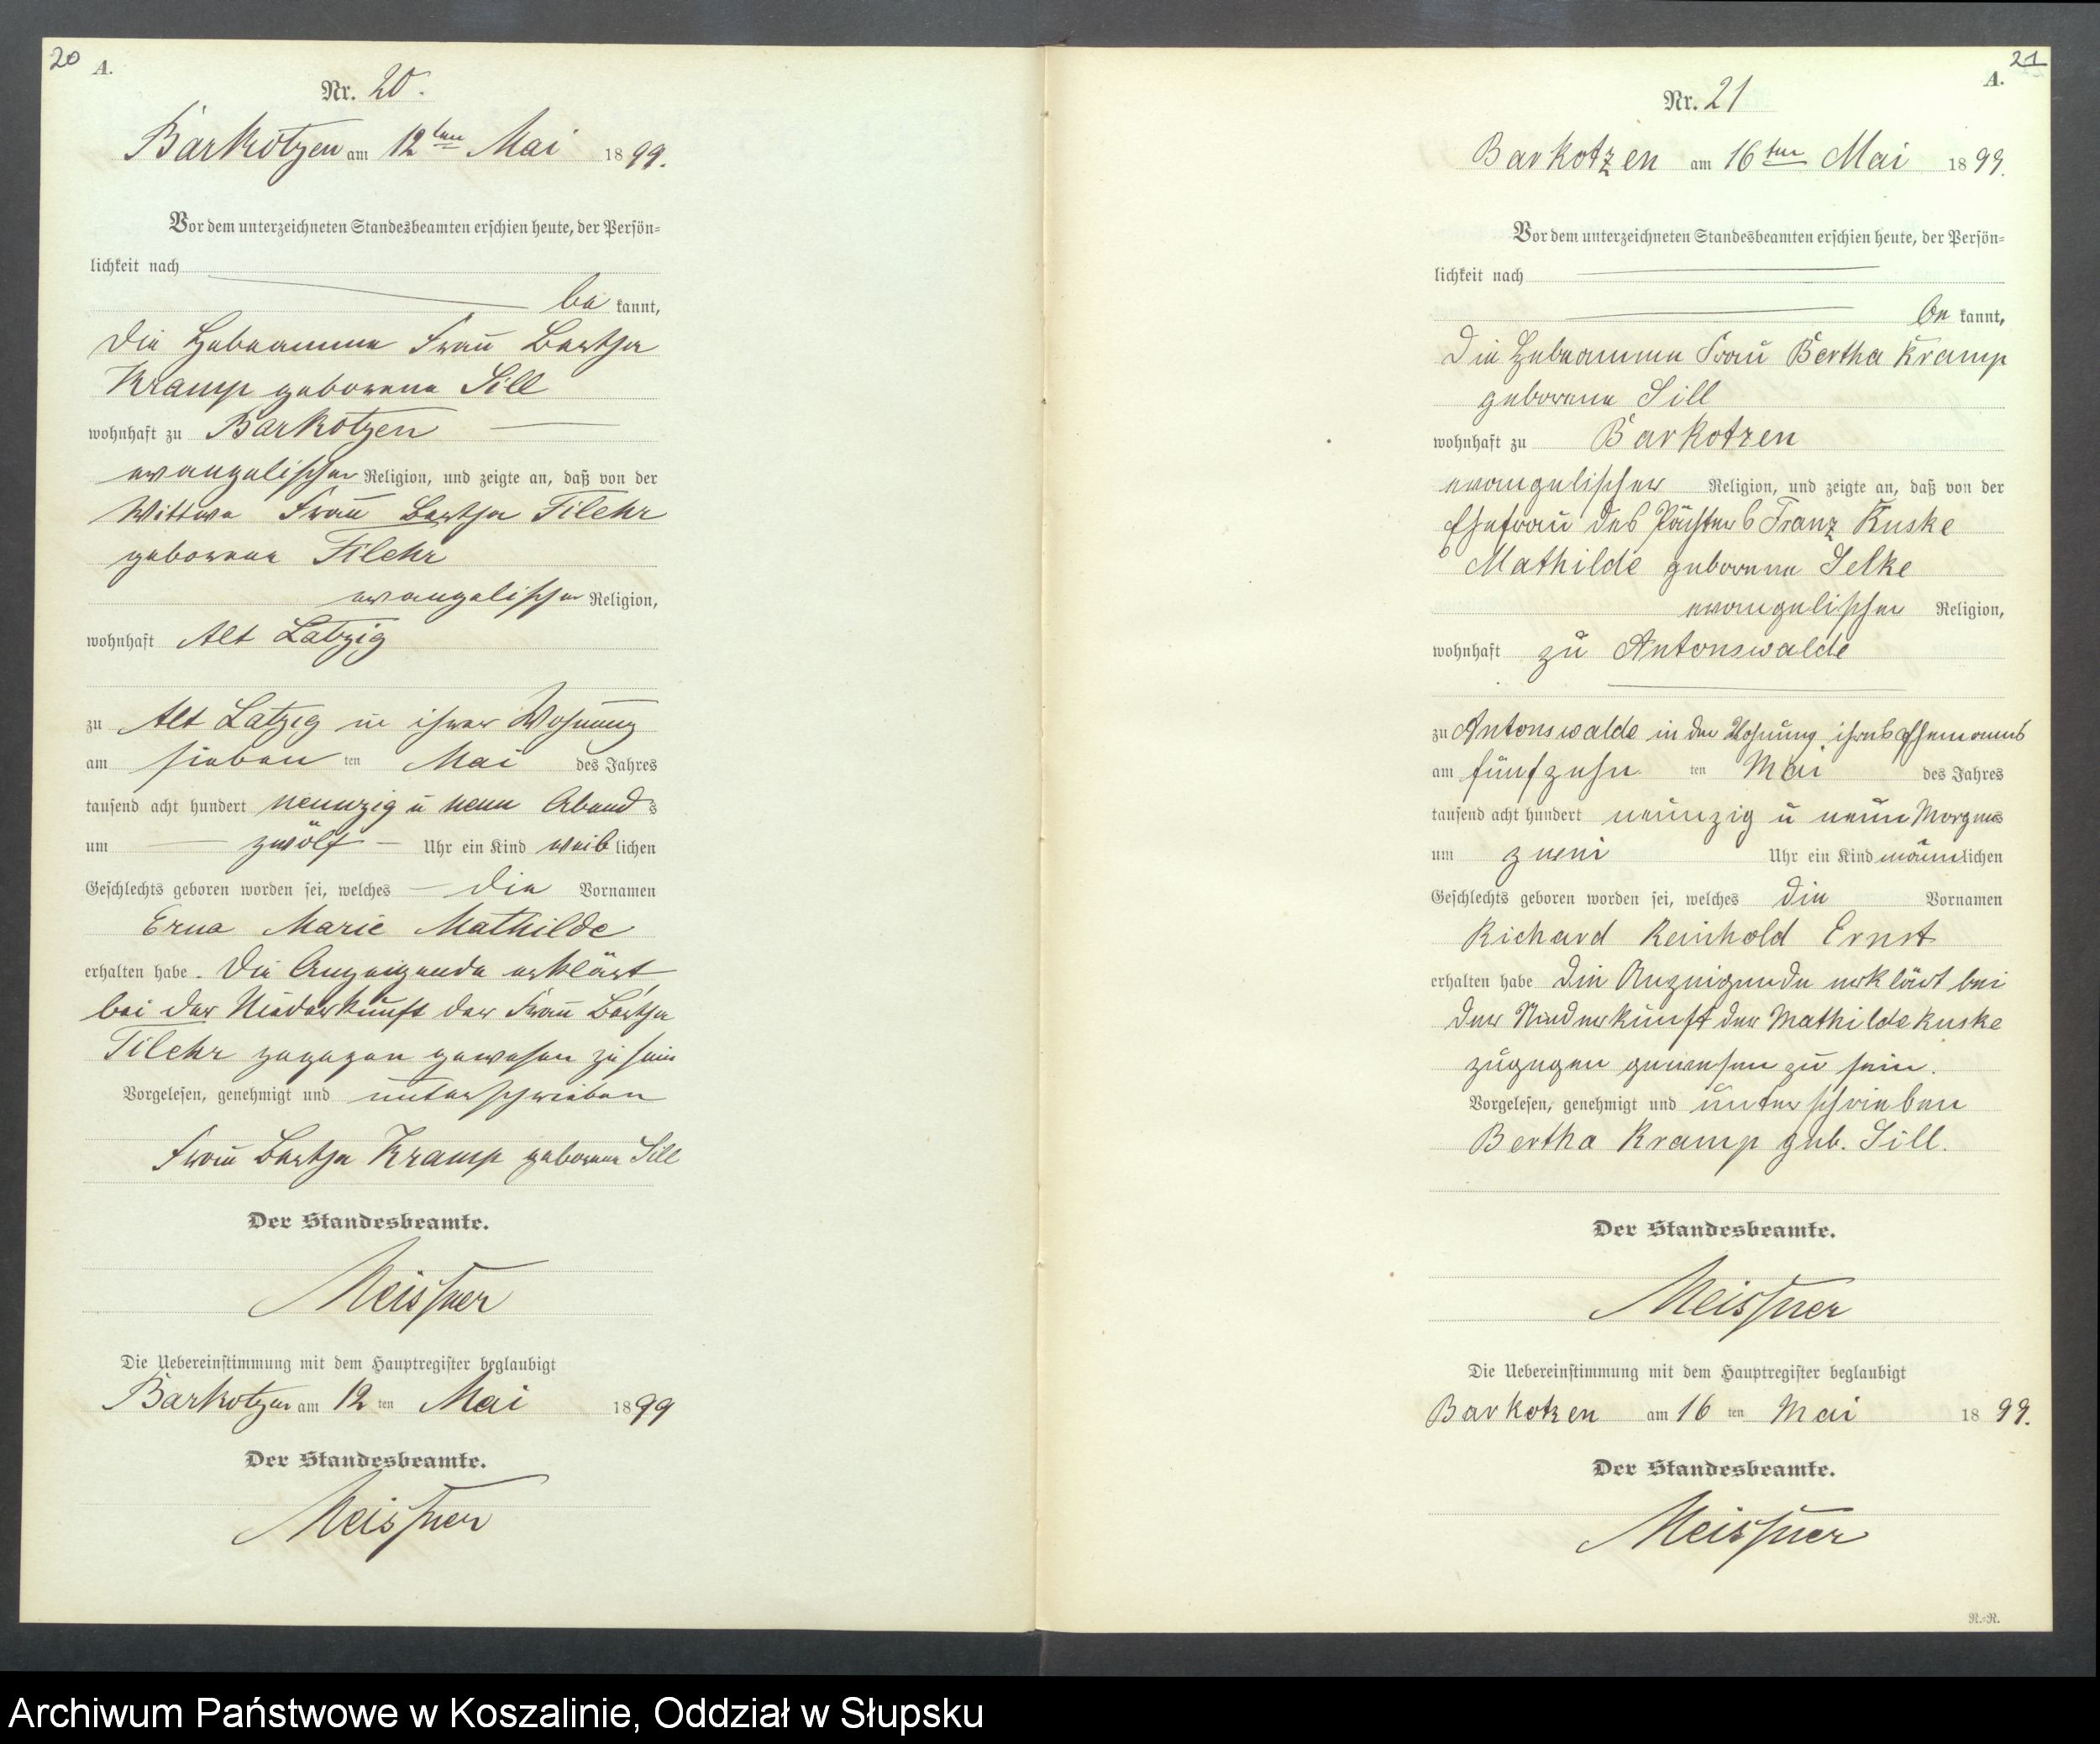 20
A.
Nr. 20.
Barkotzen am 12ten Mai 1899.
Vor dem unterzeichneten Standesbeamten erschien heute, der Persön-
lichkeit nach
be kannt,
die Hebeamme Frau Bertha
Kramp geborene Sill
wohnhaft zu Barkotzen
evangelischer Religion, und zeigte an, daß von der
Wittwe Frau Bertha Filehr
geborene Filehr
evangelischer Religion,
wohnhaft Alt Latzig
zu Alt Latzig in ihrer Wohnung
am sieben ten Mai des Jahres
tausend acht hundert neunzig u neun Abends
um zwölf Uhr ein Kind weiblichen
Geschlechts geboren worden sei, welches die Vornamen
Erna Marie Mathilde
erhalten habe. Die Anzeigende erklärt,
bei der Niederkunft der Frau Bertha
Filehr zugegen gewesen zu sein
Vorgelesen, genehmigt und unterschrieben
Frau Bertha Kramp geborene Sill
Der Standesbeamte.
Meissner
Die Uebereinstimmung mit dem Hauptregister beglaubigt
Barkotzen am 12 ten Mai 1899
Der Standesbeamte.
Meissner
21
A.
Nr. 21
Barkotzen am 16ten Mai 1899.
Vor dem unterzeichneten Standesbeamten erschien heute, der Persön-
lichkeit nach
be kannt,
die Hebeamme Frau Bertha Kramp
geborene Sill
wohnhaft zu Barkotzen
evangelischer Religion, und zeigte an, daß von der
Ehefrau des Pächters Franz Kuske
Mathilde geborene Selke
evangelischer Religion,
wohnhaft zu Antonswalde
zu Antonswalde in der Wohnung ihres Ehemanns
am fünfzehn ten Mai des Jahres
tausend acht hundert neunzig u neun Morgens
um zwei Uhr ein Kind männlichen
Geschlechts geboren worden sei, welches die Vornamen
Richard Reinhold Ernst
erhalten habe Die Anzeigende erklärt bei
der Niederkunft der Mathilde Kuske
zugegen gewesen zu sein.
Vorgelesen, genehmigt und unterschrieben
Bertha Kramp geb. Sill.
Der Standesbeamte.
Meissner
Die Uebereinstimmung mit dem Hauptregister beglaubigt
Barkotzen am 16 ten Mai 1899.
Der Standesbeamte.
Meissner
R.-R.
Archiwum Państwowe w Koszalinie, Oddział w Słupsku